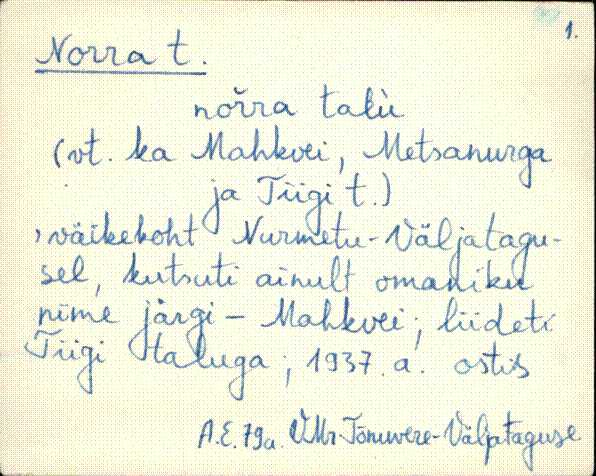 1.
Norra t.
nŏrra talù
(vt. ka Mahkvei, Metsanurga
ja Tiigi t.)
, väikekoht Nurmetu-Väljatagu-
sel, kutsuti ainult omaniku
nime järgi – Mahkvei; liideti
Tiigi taluga; 1937. a. ostis
A.E. 79a. VMr Tõnuvere-Väljataguse